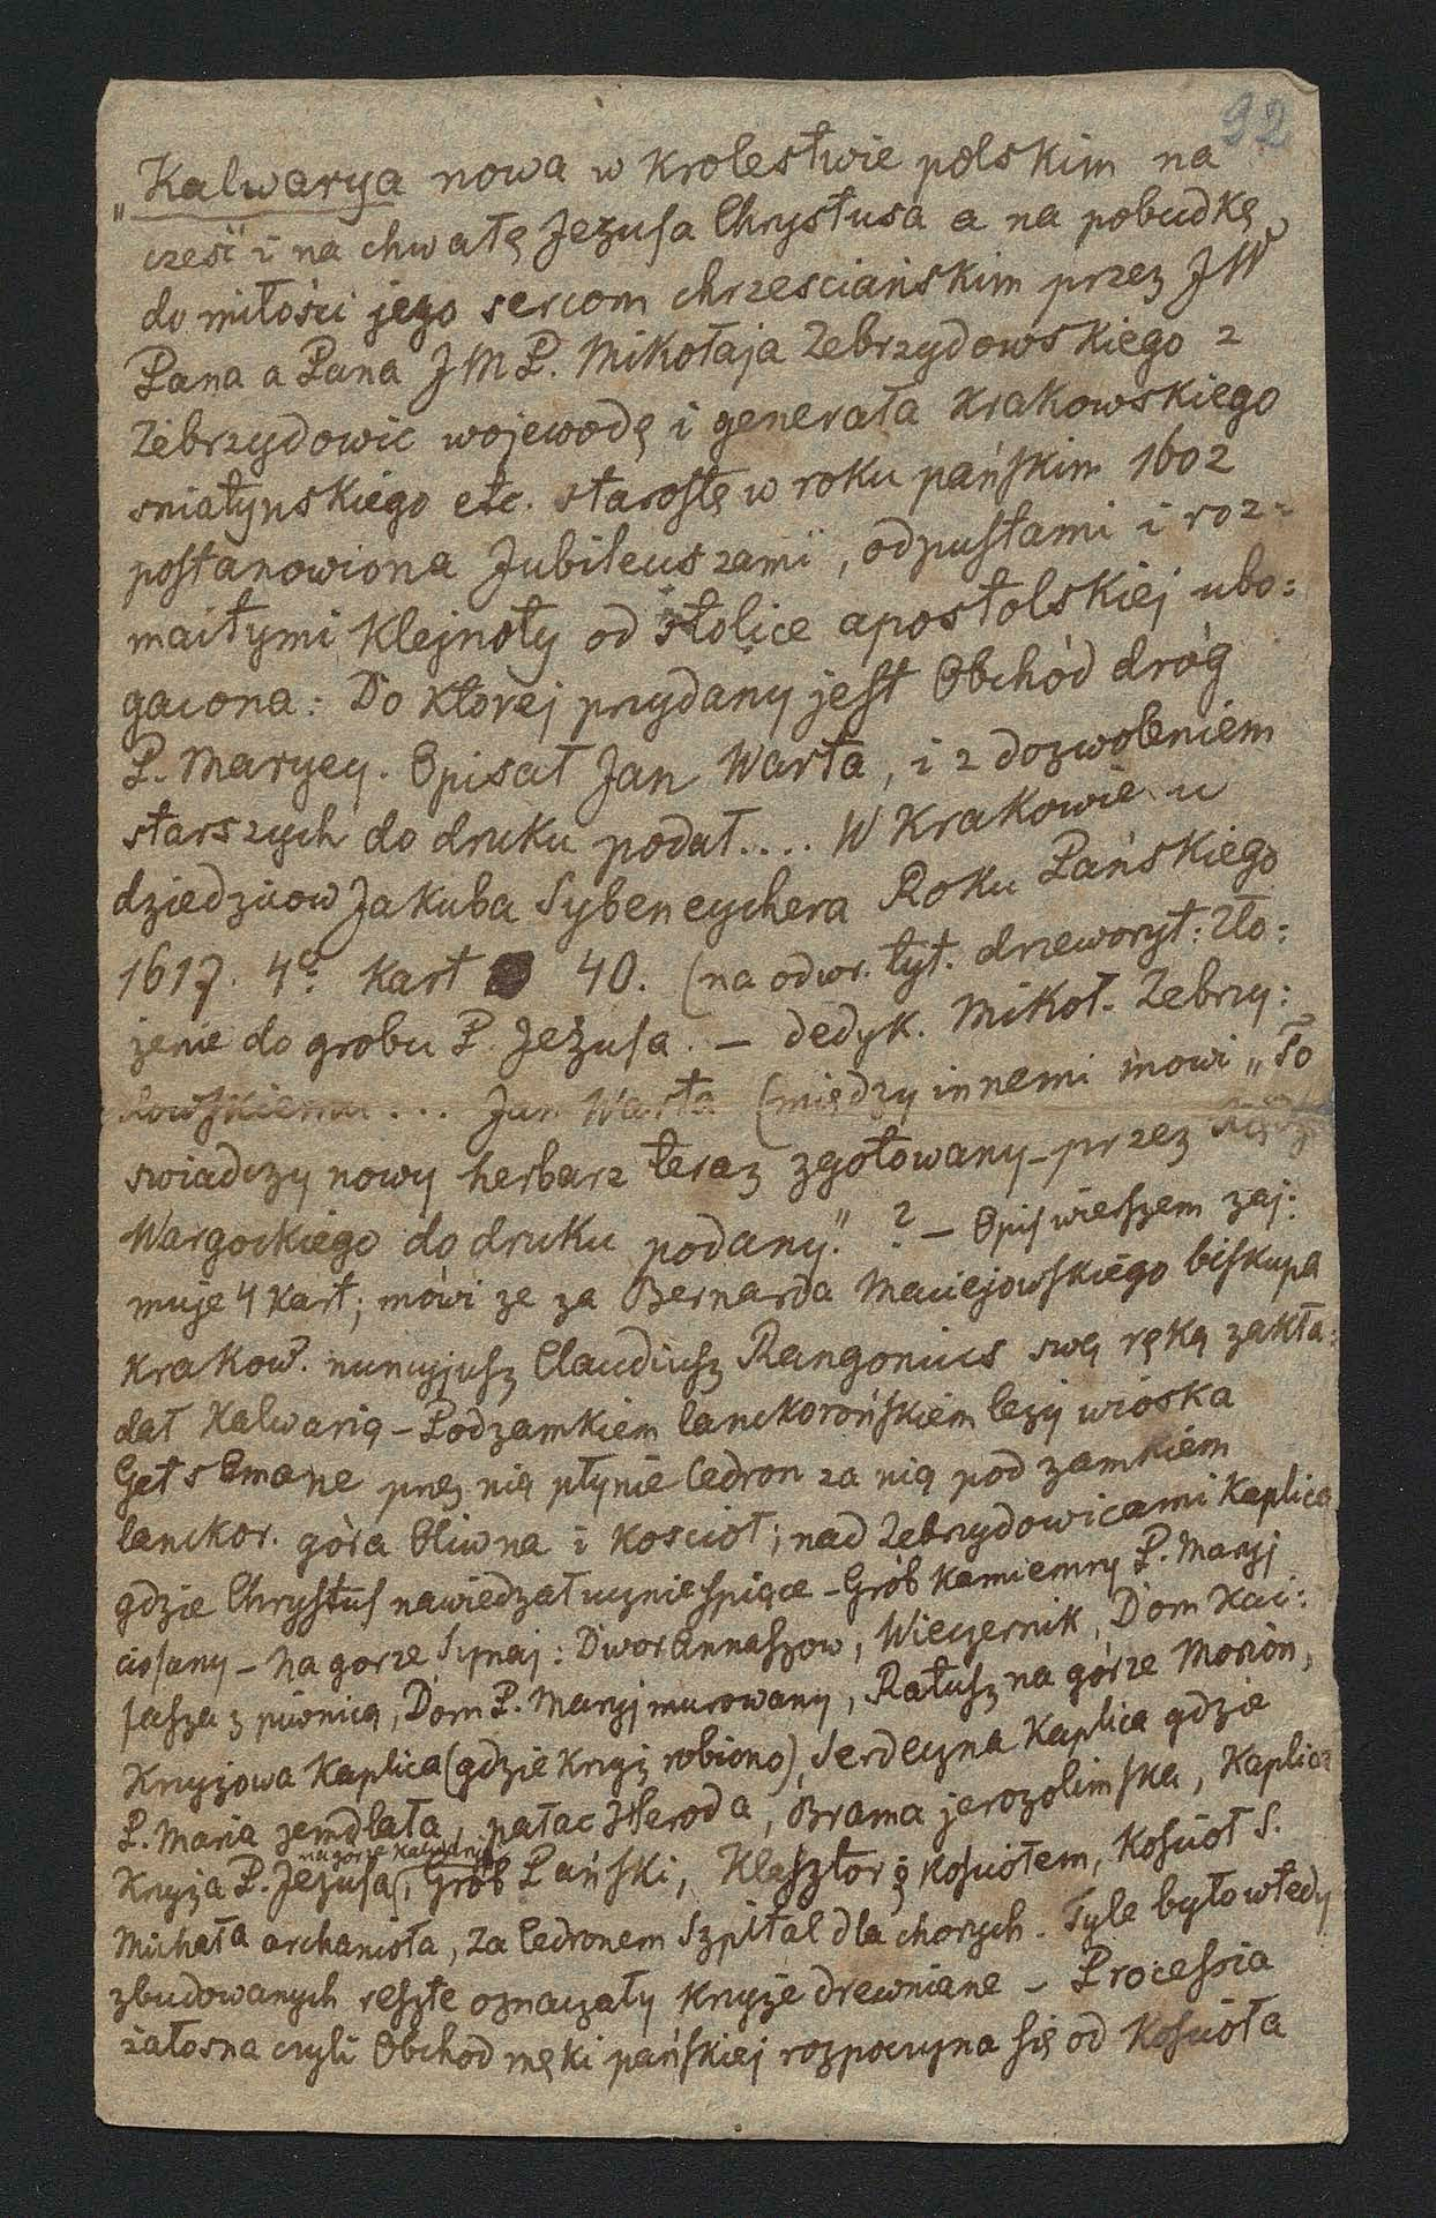 92
„Kalwarya nowa w Krolestwie polskim na
cześć i na chwałę Jezusa Chrystusa a na pobudkę
do miłości jego sercom chrzesciańskim przez JW
Pana a Pana JMP. Mikołaja Zebrzydowskiego z
Zebrzydowic wojewodę i generała Krakowskiego
sniatynskiego etc. starostę w roku pańskim 1602
postanowiona Jubileuszami, odpustami i roz=
maitymi Klejnoty od stolice apostolskiej ubo=
gacona: Do Ktorej przydany jest Obchód dróg
P. Maryey. Opisał Jan Warta, i z dozwoleniem
starszych do druku podał.... W Krakowie u
dziedzicow Jakuba Sybeneychera Roku Pańskiego
1617. 4º Kart 40. (na odwr. tyt. drzeworyt: Zło=
żenie do grobu P. Jezusa. – dedyk. Mikoł. Zebrzy=
dowskiemu... Jan Warta (między innemi mowi „To
swiadczy nowy herbarz teraz zgotowany przez
Wargockiego do druku podany." ? – Opis wierszem zaj=
muje 4 Kart; mówi ze za Bernarda Maciejowskiego biskupa
Krakow. nuncyjusz Claudiusz Rangonius swą ręką zakła=
dał Kalwarią – Podzamkiem lanckorońskiem leży wioska
Getsemane przez nią płynie Cedron za nią pod zamkiem
lanckor. góra Oliwna i Kosciol; nad Zebrzydowicami Kaplica
gdzie Chrystus nawiedzał ucznie spiące – Grób Kamienny P. Maryj
ciosany – na gorze Synaj: Dwor Annaszow, Wieczernik, Dom Kai=
fasza z piwnicą, Dom P. Maryj murowany, Ratusz na górze Morion,
Krzyżowa Kaplica (gdzie Krzyż robiono), Serdeczna Kaplica gdzie
P. Maria zemdlała, pałac Heroda, Brama jerozolimska, Kaplica
Krzyża P. Jezusa, Grób Pański, Klasztor z Kosciołem, Kościół S.
Michała archanioła, za Cedronem Szpital dla chorych. Tyle było wtedy
zbudowanych resztę oznaczały Krzyże drewniane – Processia
żałosna czyli Obchod męki pańskiej rozpoczyna się od Kościoła